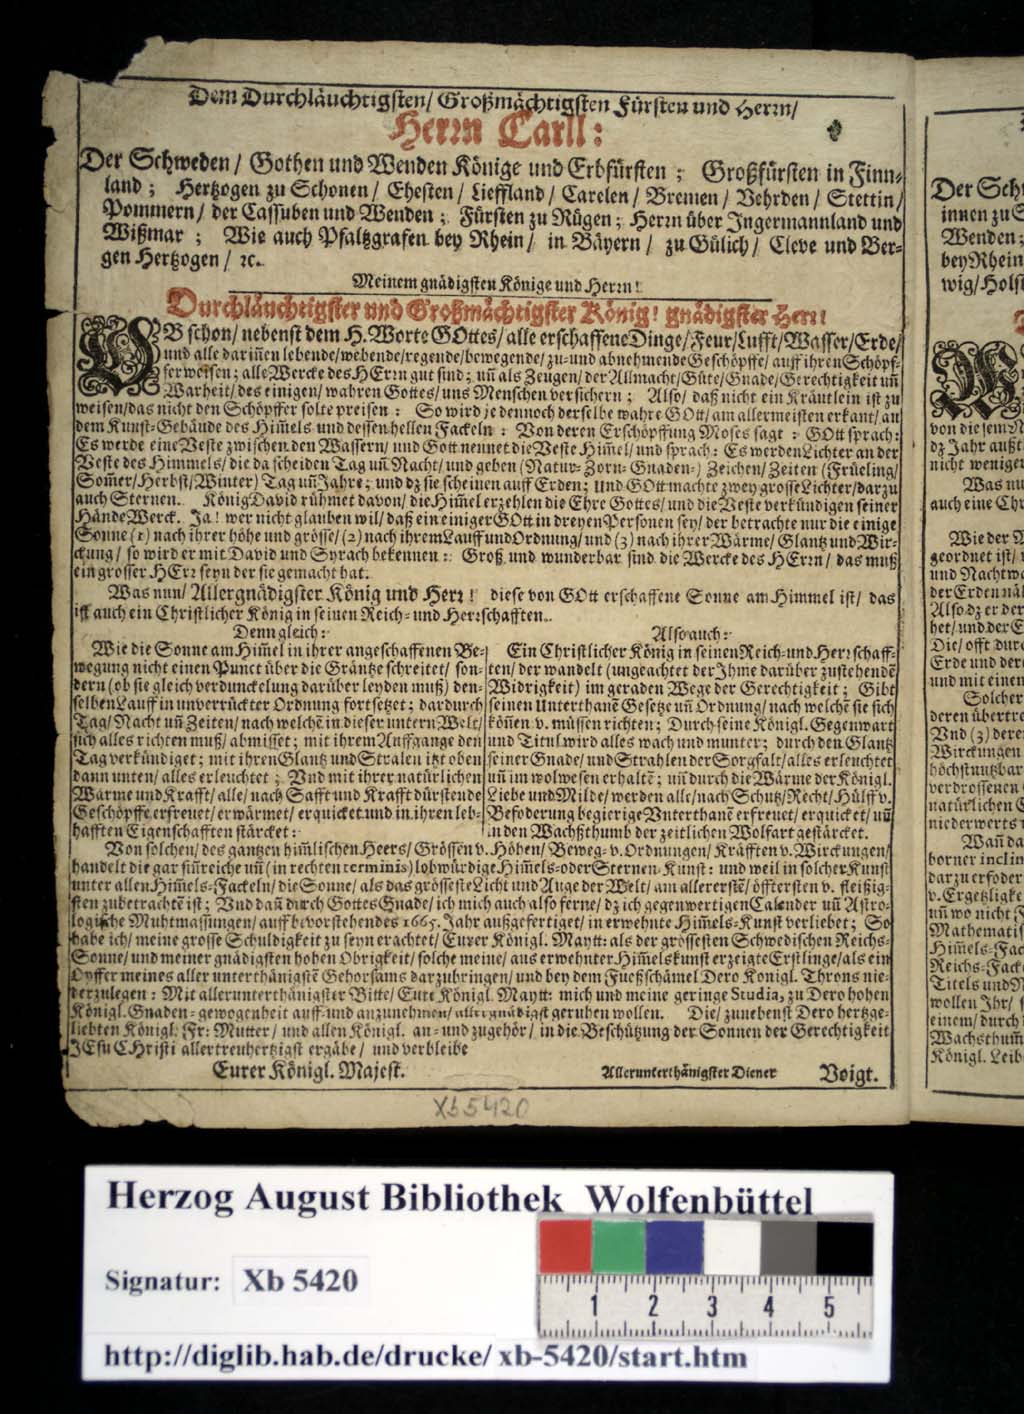 Dem Durchläuchtigsten/ Großmächtigsten Fürsten und Herrn/
Herrn Carll:
Der Schweden/ Gothen und Wenden Könige und Erbfürsten; Großfürsten in Finn-
land; Hertzogen zu Schonen/ Ehesten/ Lieffland/ Carelen/ Bremen/ Vehrden/ Stettin/
Pommern/ der Cassuben und Wenden; Fürsten zu Rügen; Herrn über Ingermannland und
Wißmar; Wie auch Pfaltzgrafen bey Rhein/ in Bäyern/ zu Gülich/ Cleve und Ber-
gen Hertzogen/ ꝛc.
Meinem gnädigsten Könige und Herrn!
Durchläuchtigster und Großmächtigster König! gnädigster Herr!
OB schon/ nebenst dem H. Worte GOttes/ alle erschaffene Dinge/ Feur/ Lufft/ Wasser/ Erde/
und alle dariñen lebende/ webende/ regende/ bewegende/ zu- und abnehmende Geschöpffe/ auff ihren Schöpf-
fer weisen; alle Wercke des HErrn gut sind; uñ als Zeugen/ der Allmacht/ Güte/ Gnade/ Gerechtigkeit uñ
Warheit/ des einigen/ wahren Gottes/ uns Menschen versichern; Also/ daß nicht ein Kräutlein ist zu
weisen/ das nicht den Schöpffer solte preisen: So wird je dennoch derselbe wahre GOtt/ am allermeisten erkant/ an
dem Kunst-Gebäude des Him̃els und dessen hellen Fackeln: Von deren Erschöpffung Moses sagt: GOtt sprach:
Es werde eine Veste zwischen den Wassern/ und Gott nennet die Veste Him̃el/ und sprach: Es werden Lichter an der
Veste des Himmels/ die da scheiden Tag uñ Nacht/ und geben (Natur- Zorn- Gnaden-) Zeichen/ Zeiten (Früeling/
Som̃er/ Herbst/ Winter) Tag uñ Jahre; und dz sie scheinen auff Erden; Und GOtt machte zwey grosse Lichter/ darzu
auch Sternen. König David rühmet davon/ die Him̃el erzehlen die Ehre Gottes/ und die Veste verkündigen seiner
Hände Werck. Ja! wer nicht glauben wil/ daß ein einiger GOtt in dreyen Personen sey/ der betrachte nur die einige
Sonne (1) nach ihrer höhe und grösse/ (2) nach ihrem Lauff und Ordnung/ und (3) nach ihrer Wärme/ Glantz und Wir-
ckung/ so wird er mit David und Syrach bekennen: Groß und wunderbar sind die Wercke des HErrn/ das muß
ein grosser HErr seyn der sie gemacht hat.
Was nun/ Allergnädigster König und Herr! diese von GOtt erschaffene Sonne am Himmel ist/ das
ist auch ein Christlicher König in seinen Reich- und Herrschafften.
Denn gleich:
Wie die Sonne am Him̃el in ihrer angeschaffenen Be-
wegung nicht einen Punct über die Gräntze schreitet/ son-
dern (ob sie gleich verdunckelung darüber leyden muß) den-
selben Lauff in unverrückter Ordnung fortsetzet; dardurch
Tag/ Nacht uñ Zeiten/ nach welchẽ in dieser untern Welt/
sich alles richten muß/ abmisset; mit ihrem Auffgange den
Tag verkündiget; mit ihren Glantz und Stralen itzt oben
dann unten/ alles erleuchtet; Vnd mit ihrer natürlichen
Wärme und Krafft/ alle/ nach Safft und Krafft dürstende
Geschöpffe erfreuet/ erwärmet/ erquicket und in ihren leb-
hafften Eigenschafften stärcket:
Also auch:
Ein Christlicher König in seinen Reich- und Herrschaff-
ten/ der wandelt (ungeachtet der Ihme darüber zustehendẽ
Widrigkeit) im geraden Wege der Gerechtigkeit; Gibt
seinen Unterthanẽ Gesetze uñ Ordnung/ nach welchẽ sie sich
köñen v. müssen richten; Durch seine Königl. Gegenwart
und Titul wird alles wach und munter; durch den Glantz
seiner Gnade/ und Strahlen der Sorgfalt/ alles erleuchtet
uñ im wolwesen erhaltẽ; uñ durch die Wärme der Königl.
Liebe und Milde/ werden alle/ nach Schutz/ Recht/ Hülff v.
Beföderung begierige Vnterthanẽ erfreuet/ erquicket/ uñ
in den Wachßthumb der zeitlichen Wolfart gestärcket.
Von solchen/ des gantzen him̃lischen Heers/ Grössen v. Höhen/ Beweg- v. Ordnungen/ Kräfften v. Wirckungen/
handelt die gar siñreiche uñ (in rechten terminis) lobwürdige Him̃els- oder Sternen-Kunst: und weil in solcher Kunst
unter allen Him̃els-Fackeln/ die Sonne/ als das grösseste Licht und Auge der Welt/ am allererstẽ/ öfftersten v. fleißig-
sten zubetrachtẽ ist; Vnd dañ durch Gottes Gnade/ ich mich auch also ferne/ dz ich gegenwertigen Calender uñ Astro-
logische Muhtmassungen/ auff bivorstehendes 1665. Jahr außgefertiget/ in erwehnte Him̃els-Kunst verliebet; So
habe ich/ meine grosse Schuldigkeit zu seyn erachtet/ Eurer Königl. Maytt: als der grössesten Schwedischen Reichs-
Sonne/ und meiner gnädigsten hohen Obrigkeit/ solche meine/ aus erwehnter Him̃elskunst erzeigte Erstlinge/ als ein
Opffer meines aller unterthänigstẽ Gehorsams darzubringen/ und bey dem Fueßschämel Dero Königl. Throns nie-
derzulegen: Mit allerunterthänigster Bitte/ Eure Königl. Maytt: mich und meine geringe Studia, zu Dero hohen
Königl. Gnaden-gewogenheit auff- und anzunehmen/ allergnädigst geruhen wollen. Die/ zunebenst Dero hertzge-
liebten Königl. Fr: Mutter/ und allen Königl. an- und zugehör/ in die Beschützung der Sonnen der Gerechtigkeit
JEsu CHristi allertreuhertzigst ergäbe/ und verbleibe
Eurer Königl. Majest.
Allerunterthänigster Diener Voigt.
Xb 5420
Herzog August Bibliothek Wolfenbüttel
Signatur: Xb 5420
1 2 3 4 5
http://diglib.hab.de/drucke/xb-5420/start.htm